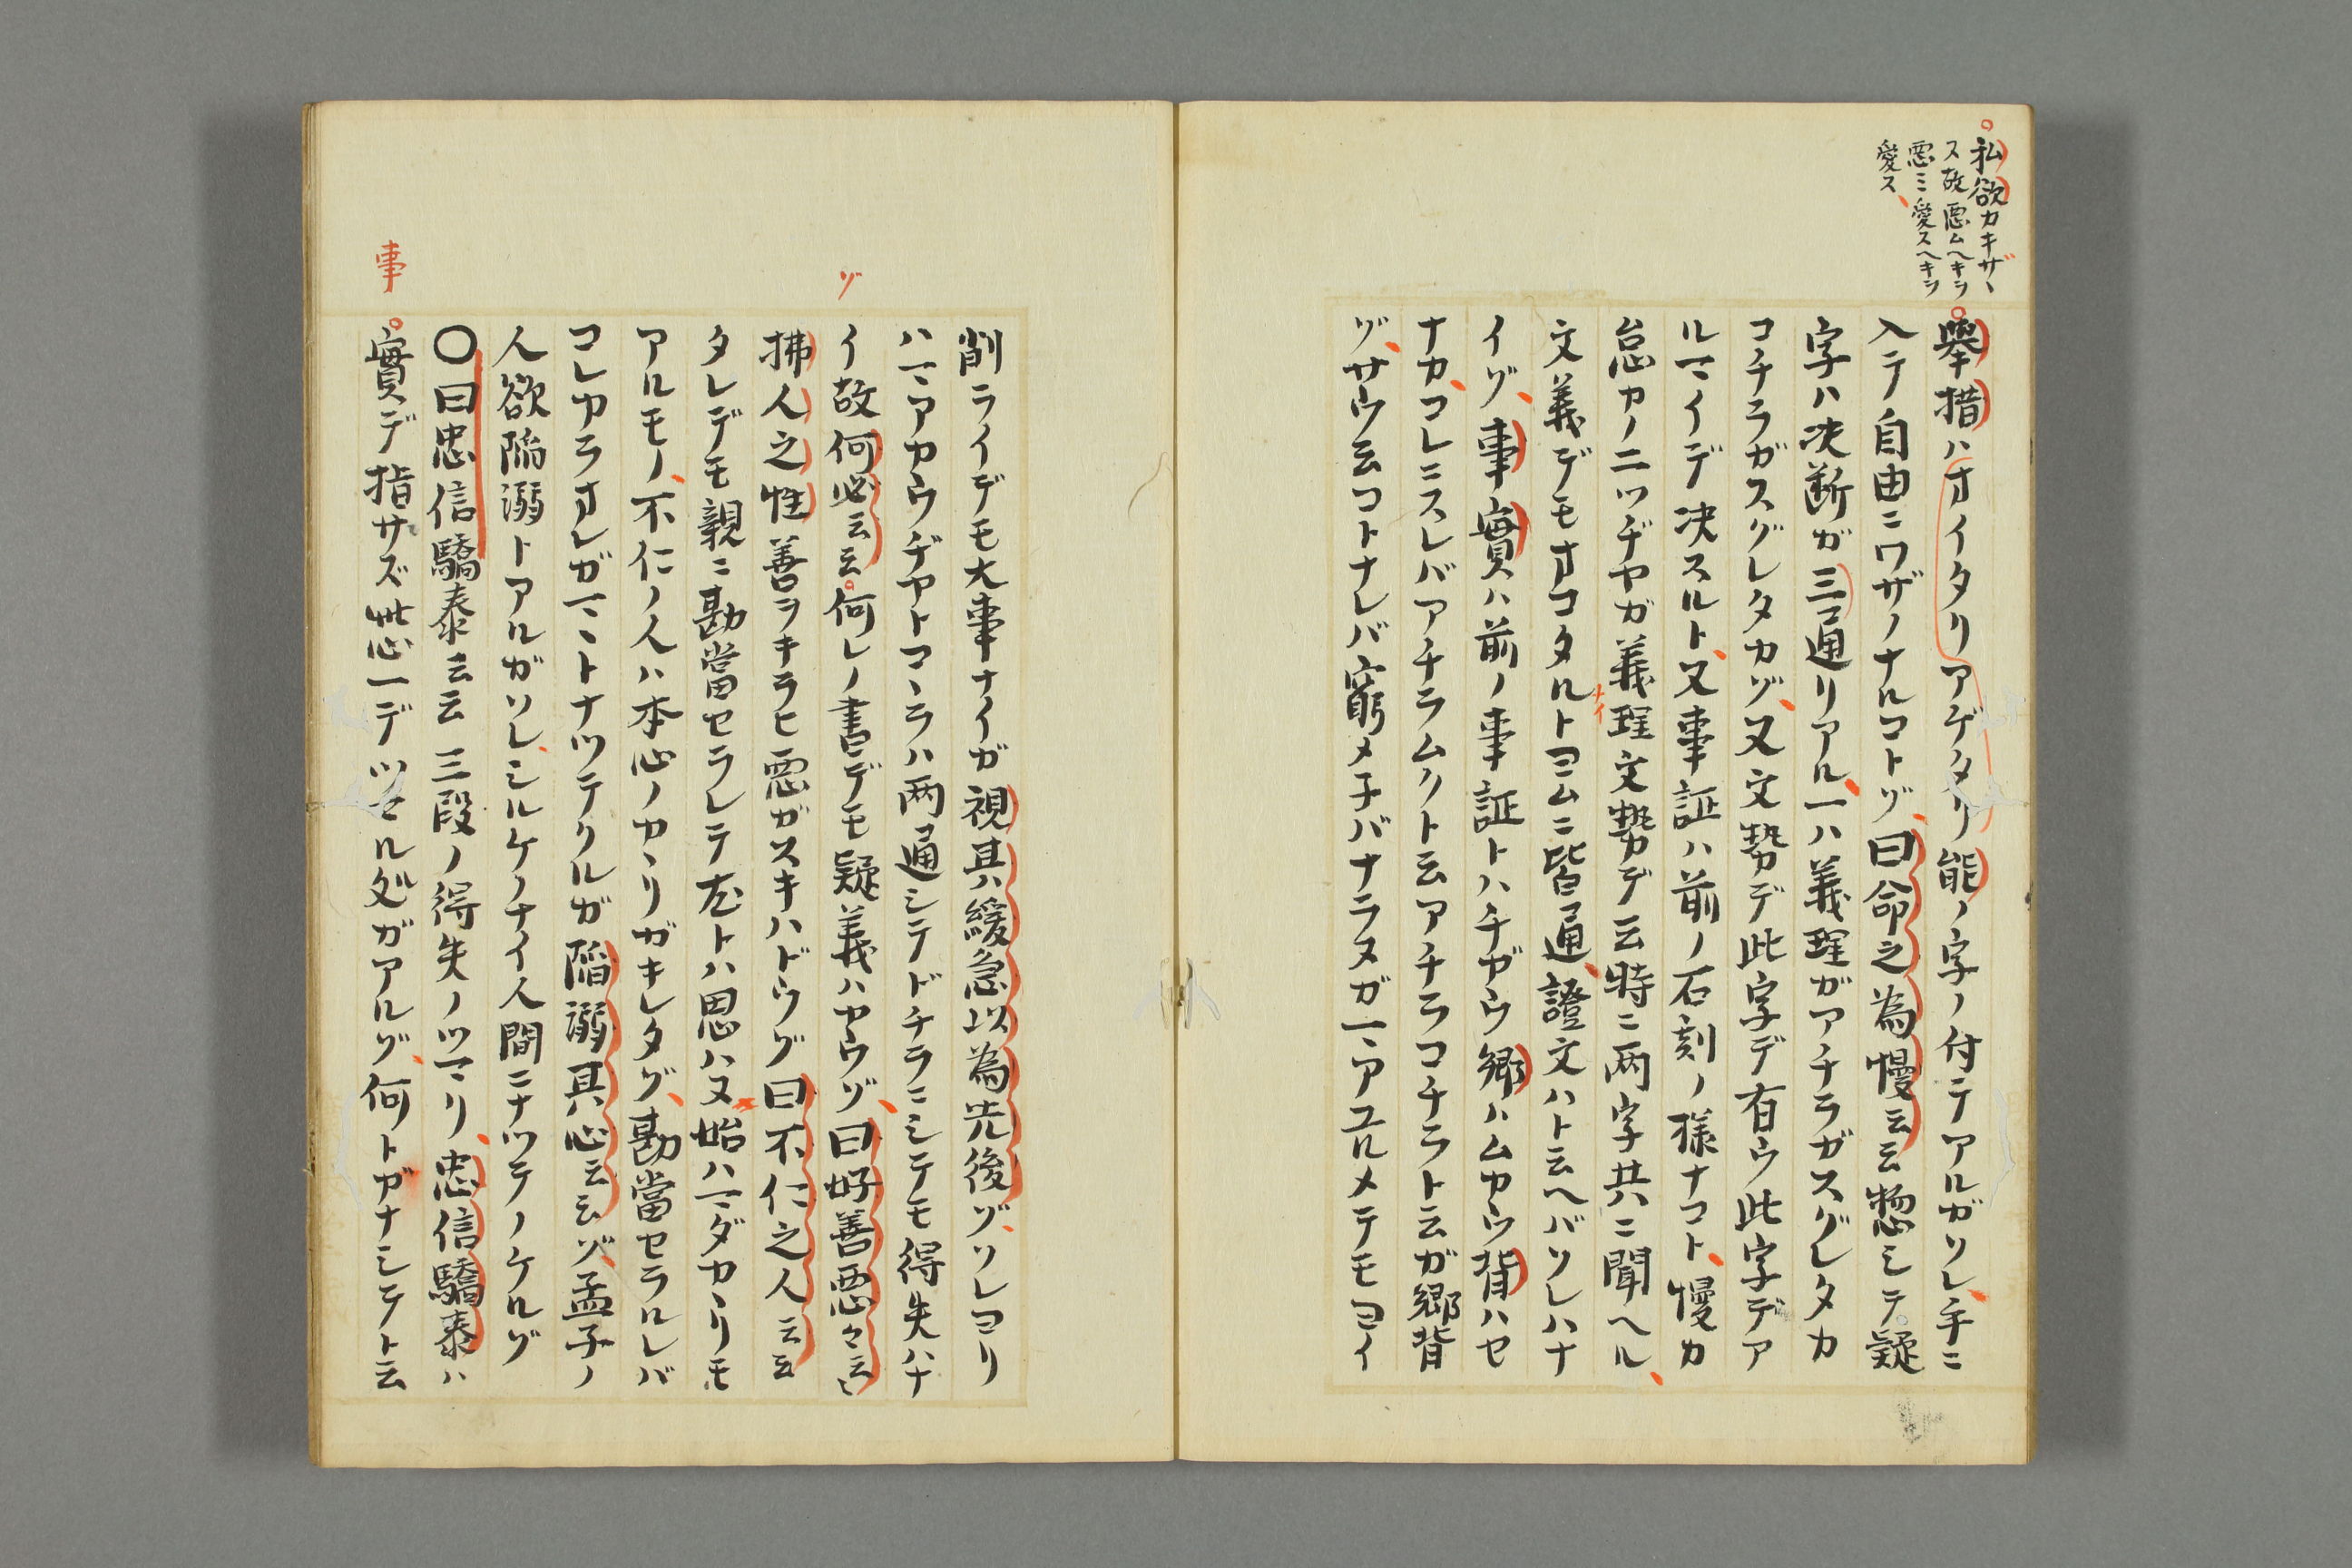 私欲カキザヽ
ス故悪ムヘキヲ
悪ミ愛スヘキヲ
愛ス
擧措ハオイタリアゲタリ能ノ字ノ付テアルガソレ手ニ
入テ自由ニワザノナルコトゾ曰命之為慢云云惣シテ疑
字ハ决断ガ三通リアル一ハ義理ガアチラガスグレタカ
コチラガスグレタカゾ又文勢デ此字デ有ウ此字デア
ルマイデ决スルト又事証ハ前ノ石刻ノ様ナコト慢カ
怠カノ二ツヂヤガ義理文勢デ云時ニ两字共ニ聞ヘル
文義デモオコタルトヨムニ皆通證文ハト云ヘバソレハナ
ナイ
イゾ事實ハ前ノ事証トハチガウ郷ハムカウ背ハセ
ナカコレニスレバアチラムクト云アチラコチラト云ガ郷背
ゾサウ云コトナレバ窮メ子バナラヌガ一ヽアユルメテモヨイ
削ライデモ大事ナイガ視其緩急以為先後ゾソレヨリ
ハマヽアカウヂヤトマヽラハ两通シテドチラニシテモ得失ハナ
ゾ
イ故何必云云何レノ書デモ疑義ハヤウゾ曰好善悪々云云
拂人之性善ヲキラヒ悪ガスキハドウゾ曰不仁之人云云
タレデモ親ニ勘當セラレテ左トハ思ハヌ始ハマダカヽリモ
アルモノ不仁ノ人ハ本心ノカヽリガキレタゾ勘當セラルレバ
コレカラオレガマヽトナツテクルガ陥溺其心云云ゾ孟子ノ
人欲陥溺トアルガソレシルケノナイ人間ニナツテノケルゾ
〇曰忠信驕泰云云三段ノ得失ノツマリ忠信驕泰ハ
事
實デ指サズ此心一デツマル処ガアルゾ何トガナシテト云